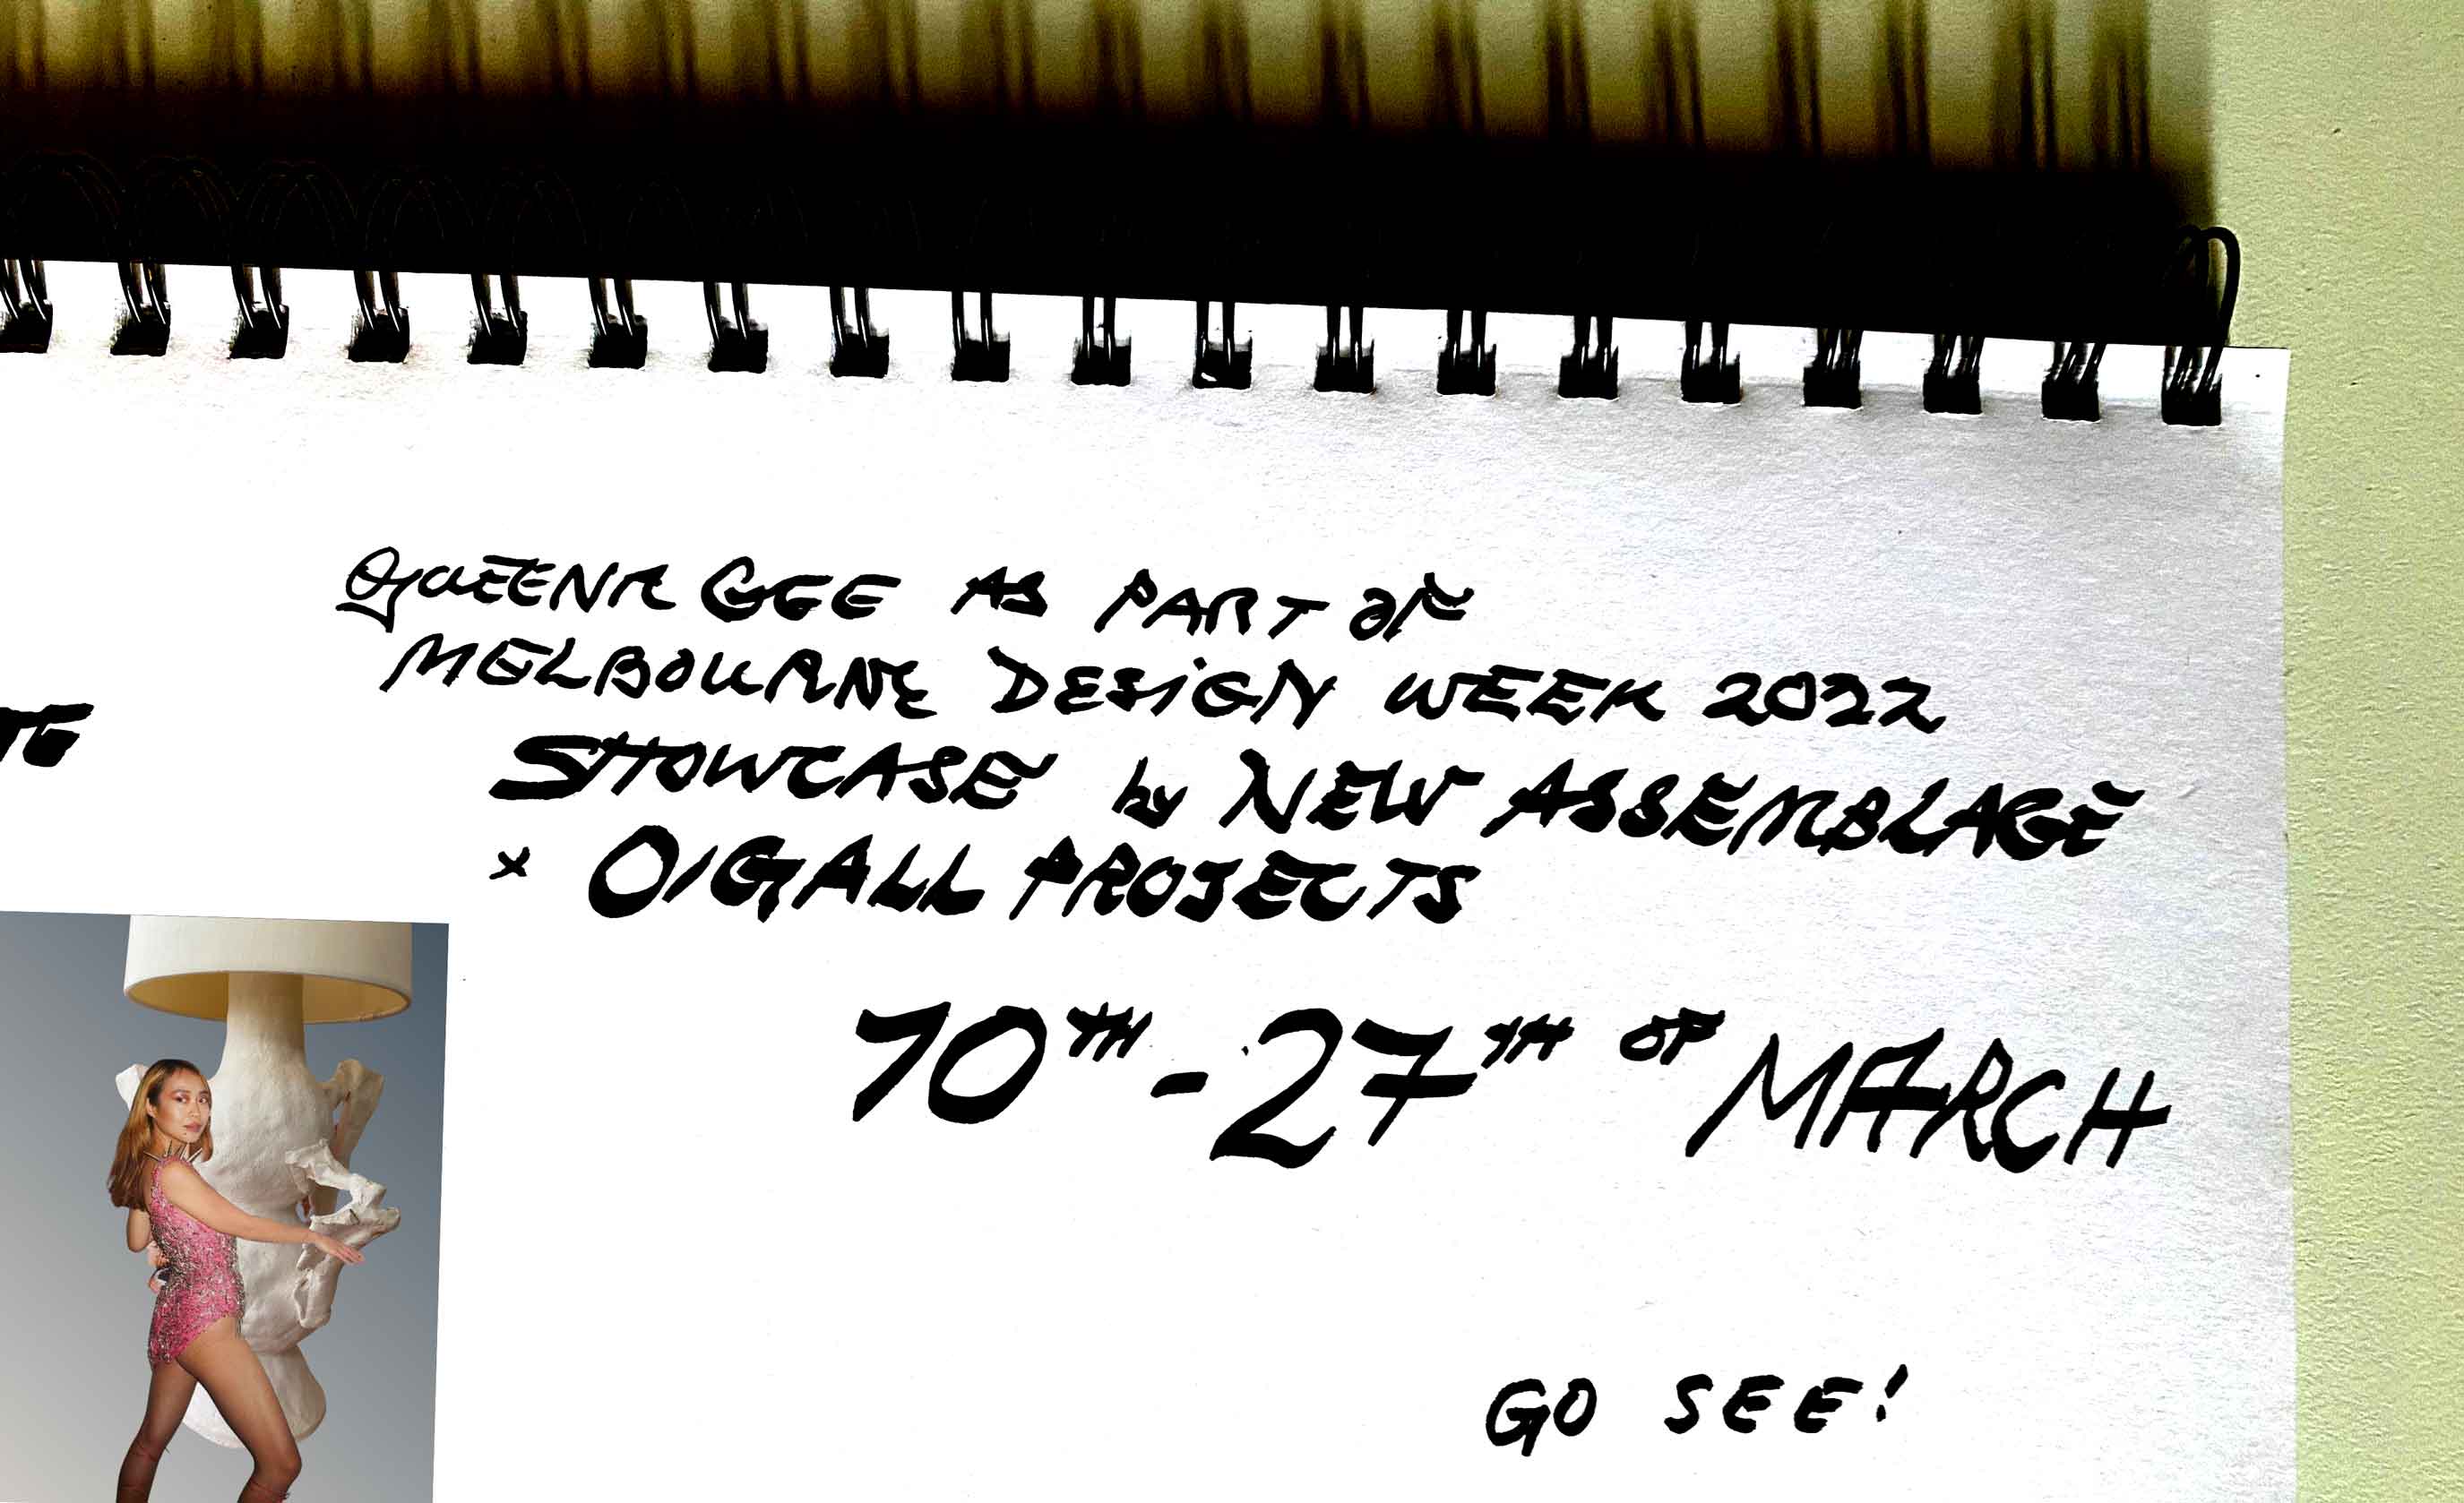 QUEENIE GEE AS PART OF
MELBOURNE DESIGN WEEK 2022
TE
SHOWCASE by NEW ASSEMBLAGE
x OIGALL PROJECTS
10TH - 27TH OF MARCH
GO SEE!